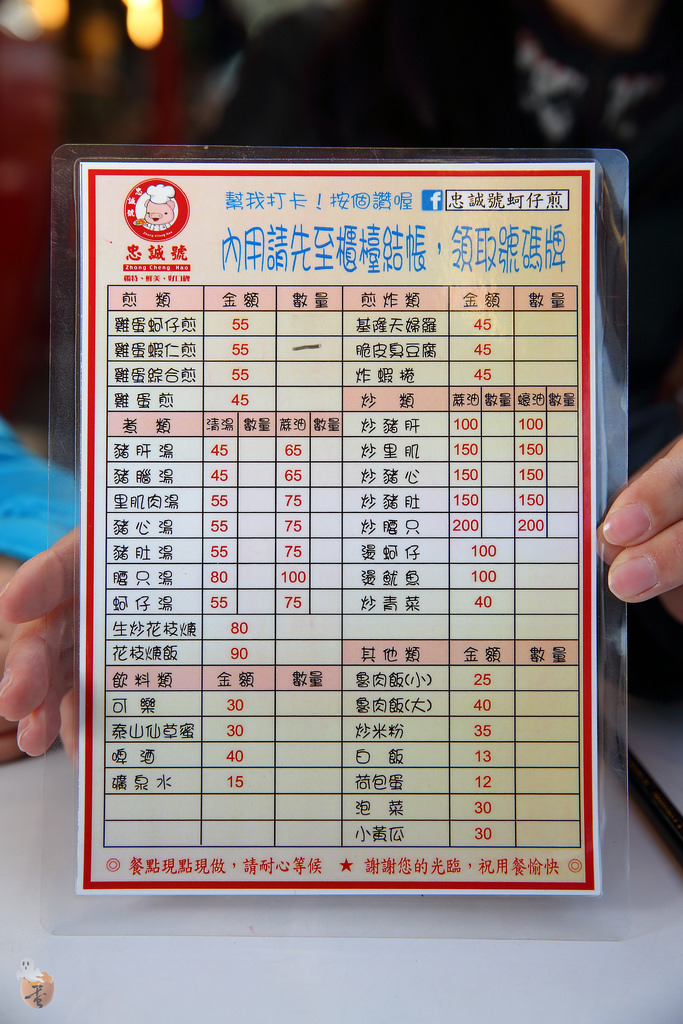 忠誠號
幫我打卡！按個讚喔 f 忠誠號蚵仔煎
忠誠號
Zhong Cheng Hao
獨特、鮮美、好口碑
內用請先至櫃檯結帳，領取號碼牌
煎類 金額 數量 煎炸類 金額 數量
雞蛋蚵仔煎 55 基隆天婦羅 45
雞蛋蝦仁煎 55 脆皮臭豆腐 45
雞蛋綜合煎 55 炸蝦捲 45
雞蛋煎 45 炒類 蔴油 數量 蠔油 數量
煮類 清湯 數量 蔴油 數量 炒豬肝 100 100
豬肝湯 45 65 炒里肌 150 150
豬腦湯 45 65 炒豬心 150 150
里肌肉湯 55 75 炒豬肚 150 150
豬心湯 55 75 炒腰只 200 200
豬肚湯 55 75 燙蚵仔 100
腰只湯 80 100 燙魷魚 100
蚵仔湯 55 75 炒青菜 40
生炒花枝焿 80
花枝焿飯 90 其他類 金額 數量
飲料類 金額 數量 魯肉飯(小) 25
可樂 30 魯肉飯(大) 40
泰山仙草蜜 30 炒米粉 35
啤酒 40 白飯 13
礦泉水 15 荷包蛋 12
泡菜 30
小黃瓜 30
◎ 餐點現點現做，請耐心等候 ★ 謝謝您的光臨，祝用餐愉快 ◎